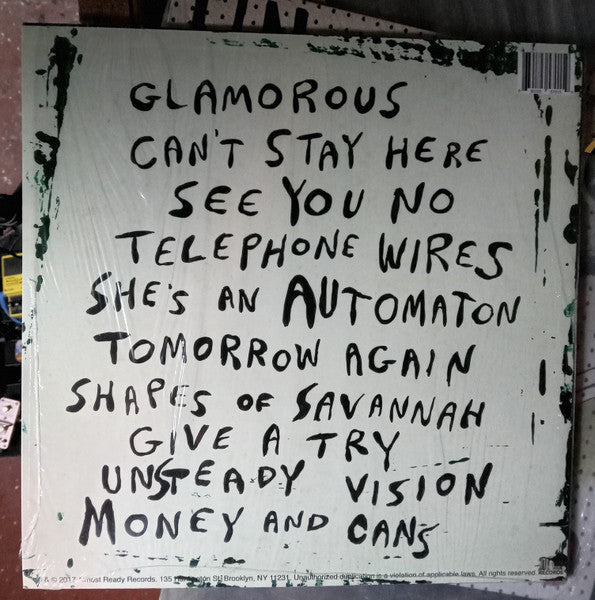 GLAMOROUS
CAN'T STAY HERE
SEE YOU NO
TELEPHONE WIRES
SHE'S AN AUTOMATON
TOMORROW AGAIN
SHAPES OF SAVANNAH
GIVE A TRY
UNSTEADY VISION
MONEY AND CANS
& © 2017 Almost Ready Records. 135 St. Brooklyn, NY 11231. Unauthorized duplication is a violation of applicable laws. All rights reserved.
RECORDS